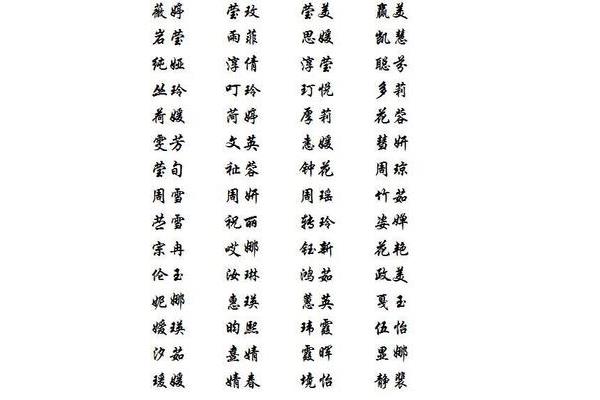 薇婷 莹玫 莹美 赢美
岩莹 雨菲 思媛 凯慧
纯娅 淳倩 淳莹 聪芬
丛玲 叮玲 玎悦 多莉
荷媛 菏婷 厚莉 花蓉
雯芳 文英 志媛 彗妍
莹旬 祉蓉 钟花 周琼
周雪 周妍 周瑶 竹茹
苎雪 祝丽 转玲 姿婵
宗冉 哎娜 钰新 花艳
伦玉 汝琳 鸿茹 政美
妮娜 惠瑛 蕙英 戛玉
嫒瑛 昀熙 玮霞 伍怡
汐茹 盍婧 霞晖 显娜
瑗媛 婧春 境怡 静裴